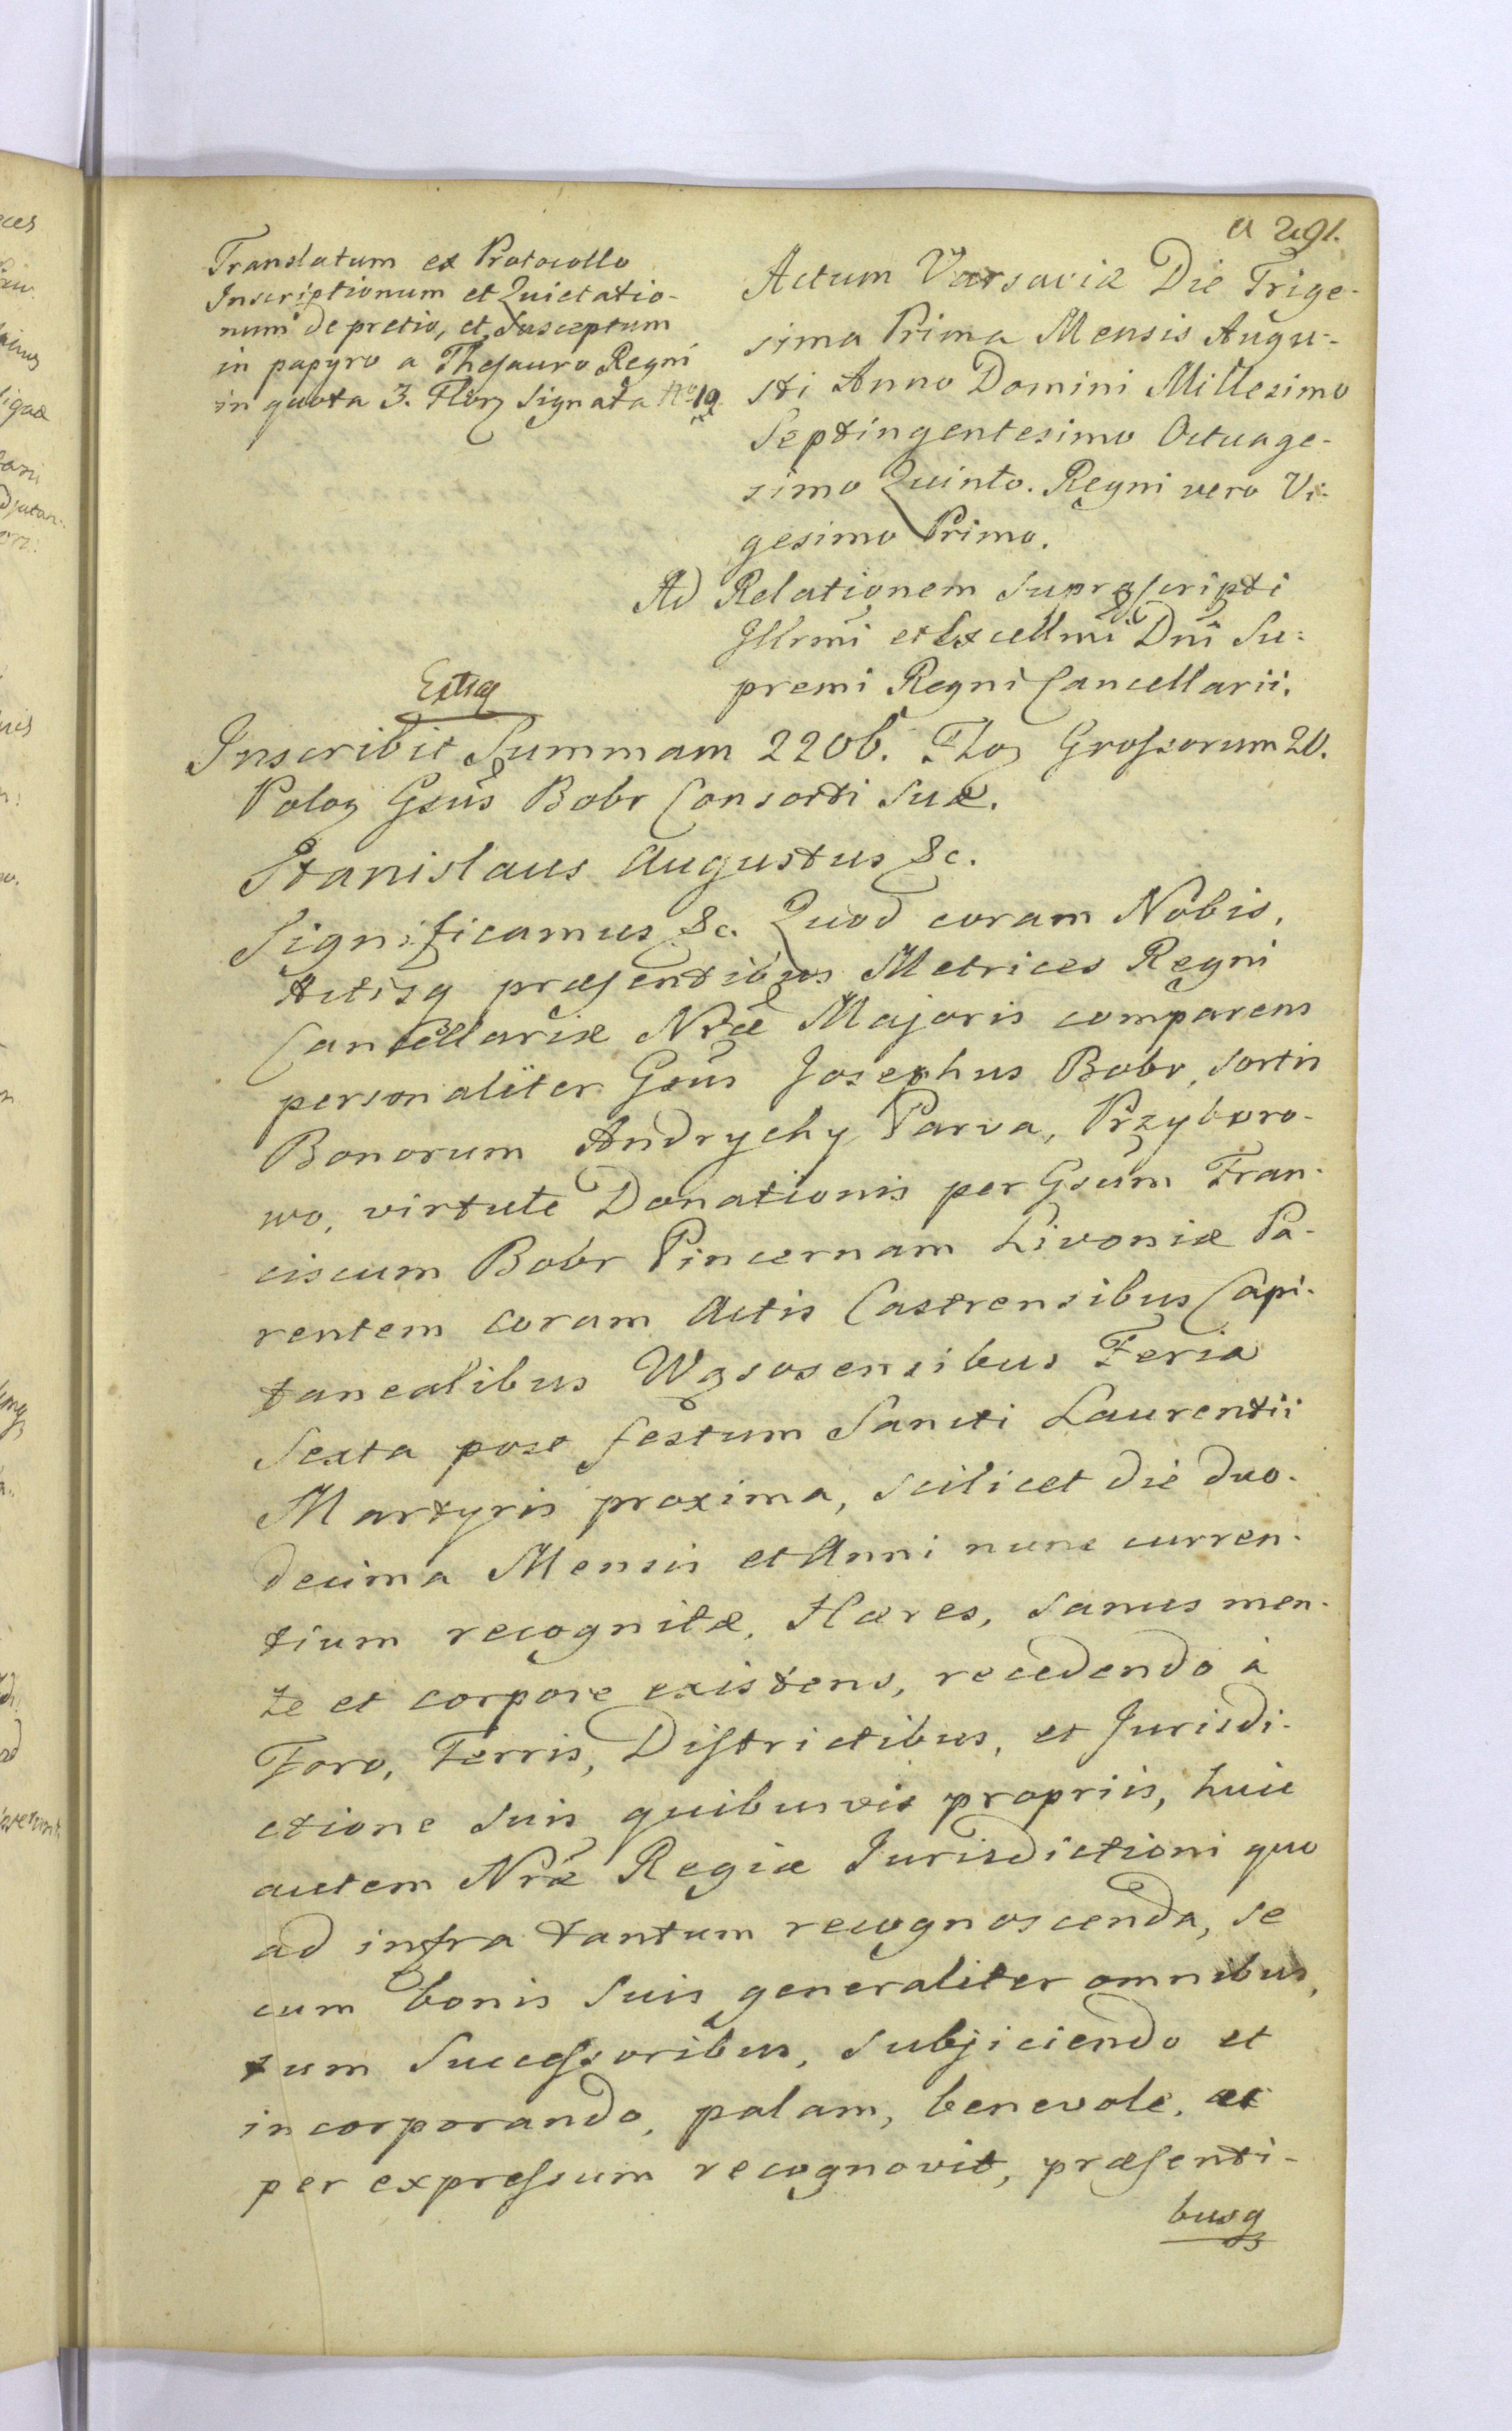 a 291.
Translatum ex Protocollo
Inscriptionum et Quietatio-
num de pretio, et Susceptum
in papyro a Thesauro Regni
in quota 3. Flor Signata No 19.
Actum Varsaviæ Die Trige-
sima Prima Mensis Augu-
sti Anno Domini Millesimo
Septingentesimo Octuage-
simo Quinto. Regni vero Vi-
gesimo Primo.
Ad Relationem Suprascripti
Illrmi et Excellmi Dni Su-
premi Regni Cancellarii.
Inscribit Summam 2206. Floz Grossorum 20.
Poloz Gsus Bobr Consorti Suæ.
Stanislaus Augustus &c.
Significamus &c. Quod coram Nobis,
Actisq præsentibus Metrices Regni
Cancellariæ Nræ Majoris comparens
personaliter Gsus Josephus Bobr, Sortis
Bonorum Andrychy Parva, Przyboro-
wo, virtute Donationis per Gsum Fran-
ciscum Bobr Pincernam Livoniæ Pa-
rentem coram Actis Castrensibus Capi-
tanealibus Wąsosensibus Feria
Sexta post festum Sancti Laurentii
Martyris proxima, scilicet die duo-
decima Mensis et Anni nunc curren-
tium recognitæ, Hæres, sanus men-
te et corpore existens, recedendo à
Foro, Terris, Districtibus, et Jurisdi-
ctione suis quibusvis propriis, huic
autem Nræ Regiæ Jurisdictioni quo
ad infra tantum recognoscenda, se
cum bonis Suis generaliter omnibus,
tum Successoribus, subjiciendo et
incorporando, palam, benevole, et
per expressum recognovit, præsenti-
busq